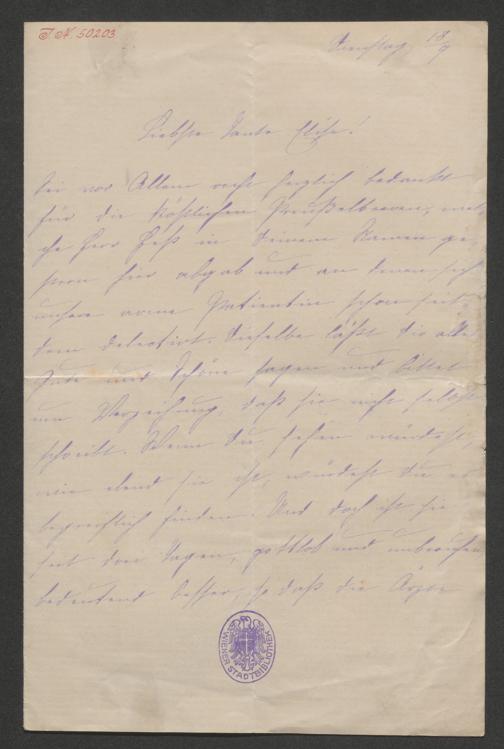 J. N. 50203
Dienstag 18/9
Liebste Tante Elise!
Sei vor Allem recht herzlich bedankt
für die köstlichen Preußelbeeren, wel-
che Herr Heß in Deinem Namen ge-
stern hier abgab und an denen sich
unsere arme Patientin schon seit-
dem delectirt. Dieselbe läßt Dir alles
Gute und Schöne sagen und bittet
um Verzeihung, daß sie nicht selbst
schreibt. Wenn Du sehen würdest,
wie elend sie ist, würdest Du es
begreiflich finden. Und doch ist sie
seit drei Tagen, gottlob und unberufen
bedeutend besser, so daß die Ärzte
WIENER STADTBIBLIOTHEK